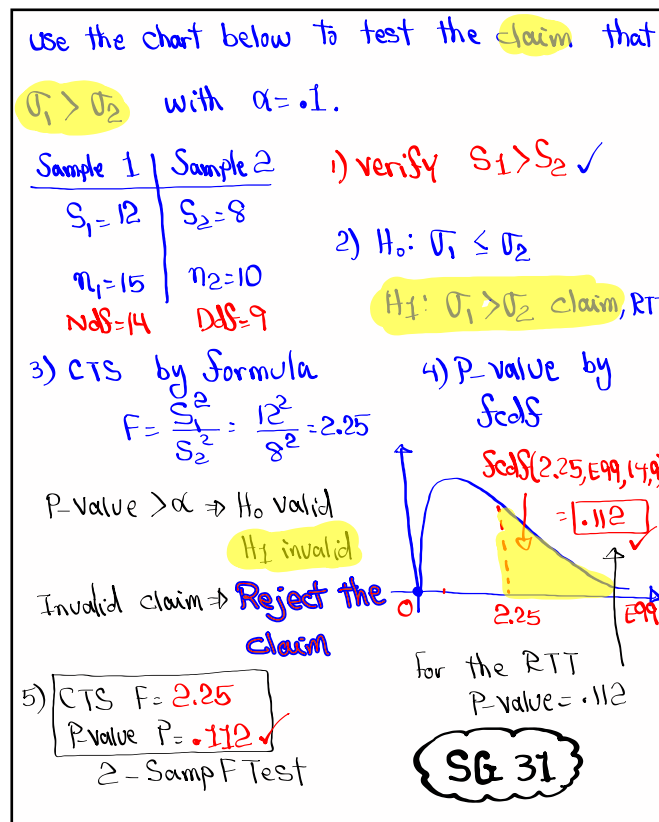 use the chart below to test the claim that
σ₁ > σ₂ with α = .1.
Sample 1 | Sample 2
S₁ = 12 S₂ = 8
n₁ = 15 n₂ = 10
Ndf = 14 Ddf = 9
1) verify S₁ > S₂ ✓
2) H₀: σ₁ ≤ σ₂
H₁: σ₁ > σ₂ claim, RT
3) CTS by formula
F = S₁²/S₂² = 12²/8² = 2.25
4) P-value by
fcdf
fcdf(2.25, E99, 14, 9)
= .112 ✓
P-value > α ⇒ H₀ valid
H₁ invalid
Invalid claim ⇒ Reject the
claim
0 2.25 E99
For the RTT
P-value = .112
5) CTS F = 2.25
P-value P = .112 ✓
2-Samp F Test
SG 31